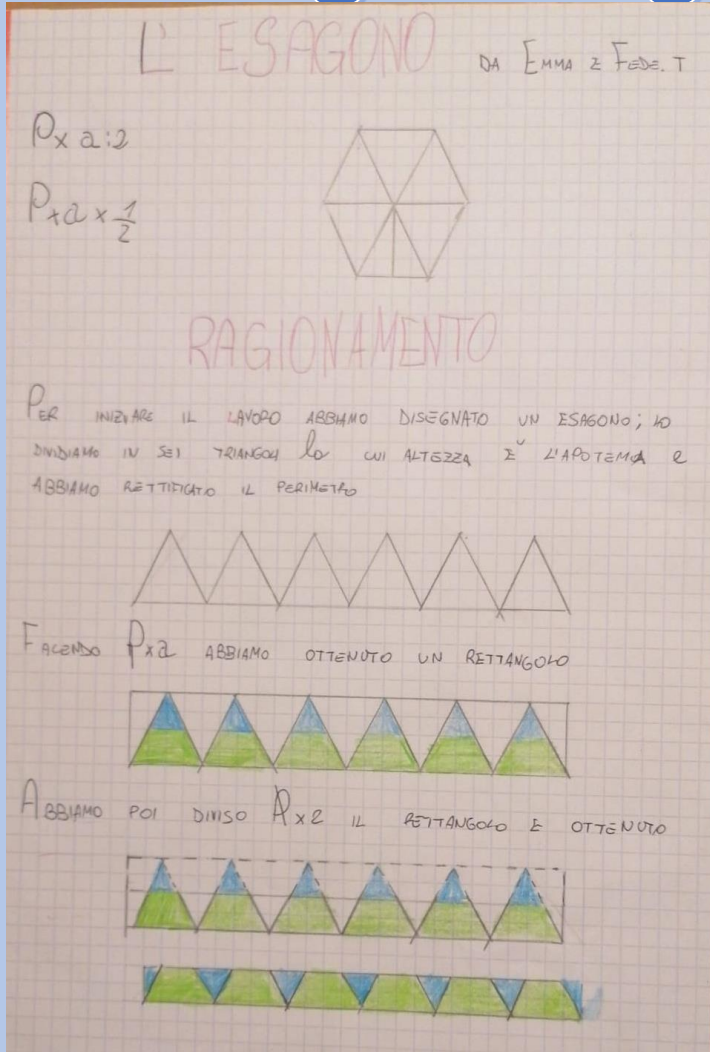 L' ESAGONO DA EMMA E FEDE. T
P x a : 2
P x a x 1/2
RAGIONAMENTO
PER INIZIARE IL LAVORO ABBIAMO DISEGNATO UN ESAGONO; LO
DIVIDIAMO IN SEI TRIANGOLI la CUI ALTEZZA È L'APOTEMA e
ABBIAMO RETTIFICATO IL PERIMETRO
FACENDO P x a ABBIAMO OTTENUTO UN RETTANGOLO
ABBIAMO POI DIVISO x 2 IL RETTANGOLO E OTTENUTO